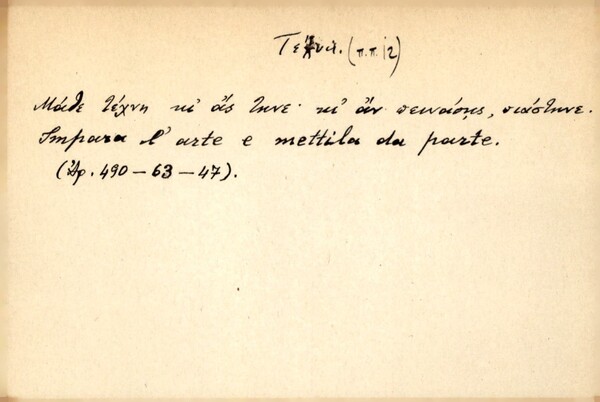 Τέχνη. (π.π. 12)
Μάθε τέχνη κι' ἄς τηνε· κι' ἄν πεινάσῃς, πιάστηνε.
Impara l' arte e mettila da parte.
(Ἀρ. 490 – 63 – 47).